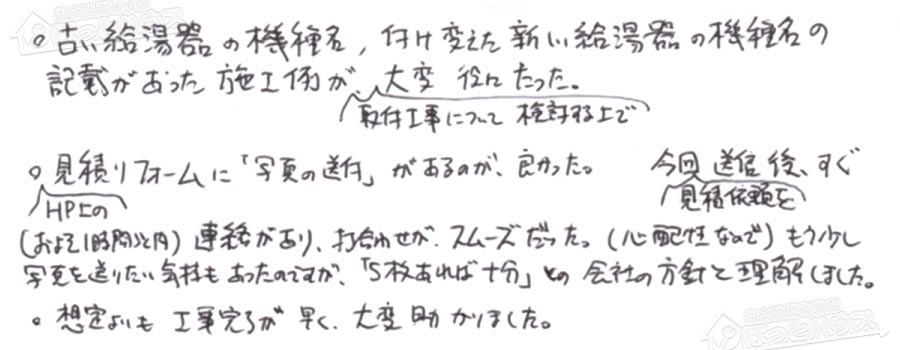 。古い給湯器の機種名, 付け変えた新しい給湯器の機種名の
記載があった施工例が、大変 役にたった。
取付工事について 検討する上で
。見積りフォームに「写真の送付」があるのが、良かった。 今回 送信後、すぐ
HP上の 見積依頼を
(およそ1時間以内) 連絡があり、打合わせが、スムーズだった。(心配性なので) もう少し
写真を送りたい気持もあったのですが、「5枚あれば十分」との 会社の方針と理解しました。
。想定よりも 工事完了が 早く、大変助かりました。
ほっとハウス